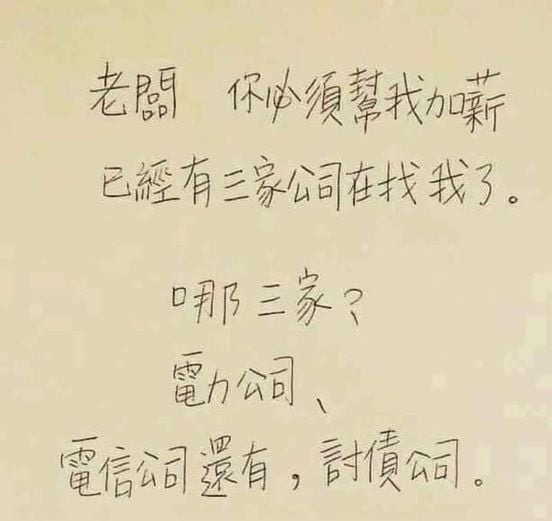 老闆 你必須幫我加薪
已經有三家公司在找我了。
哪三家？
電力公司、
電信公司還有，討債公司。